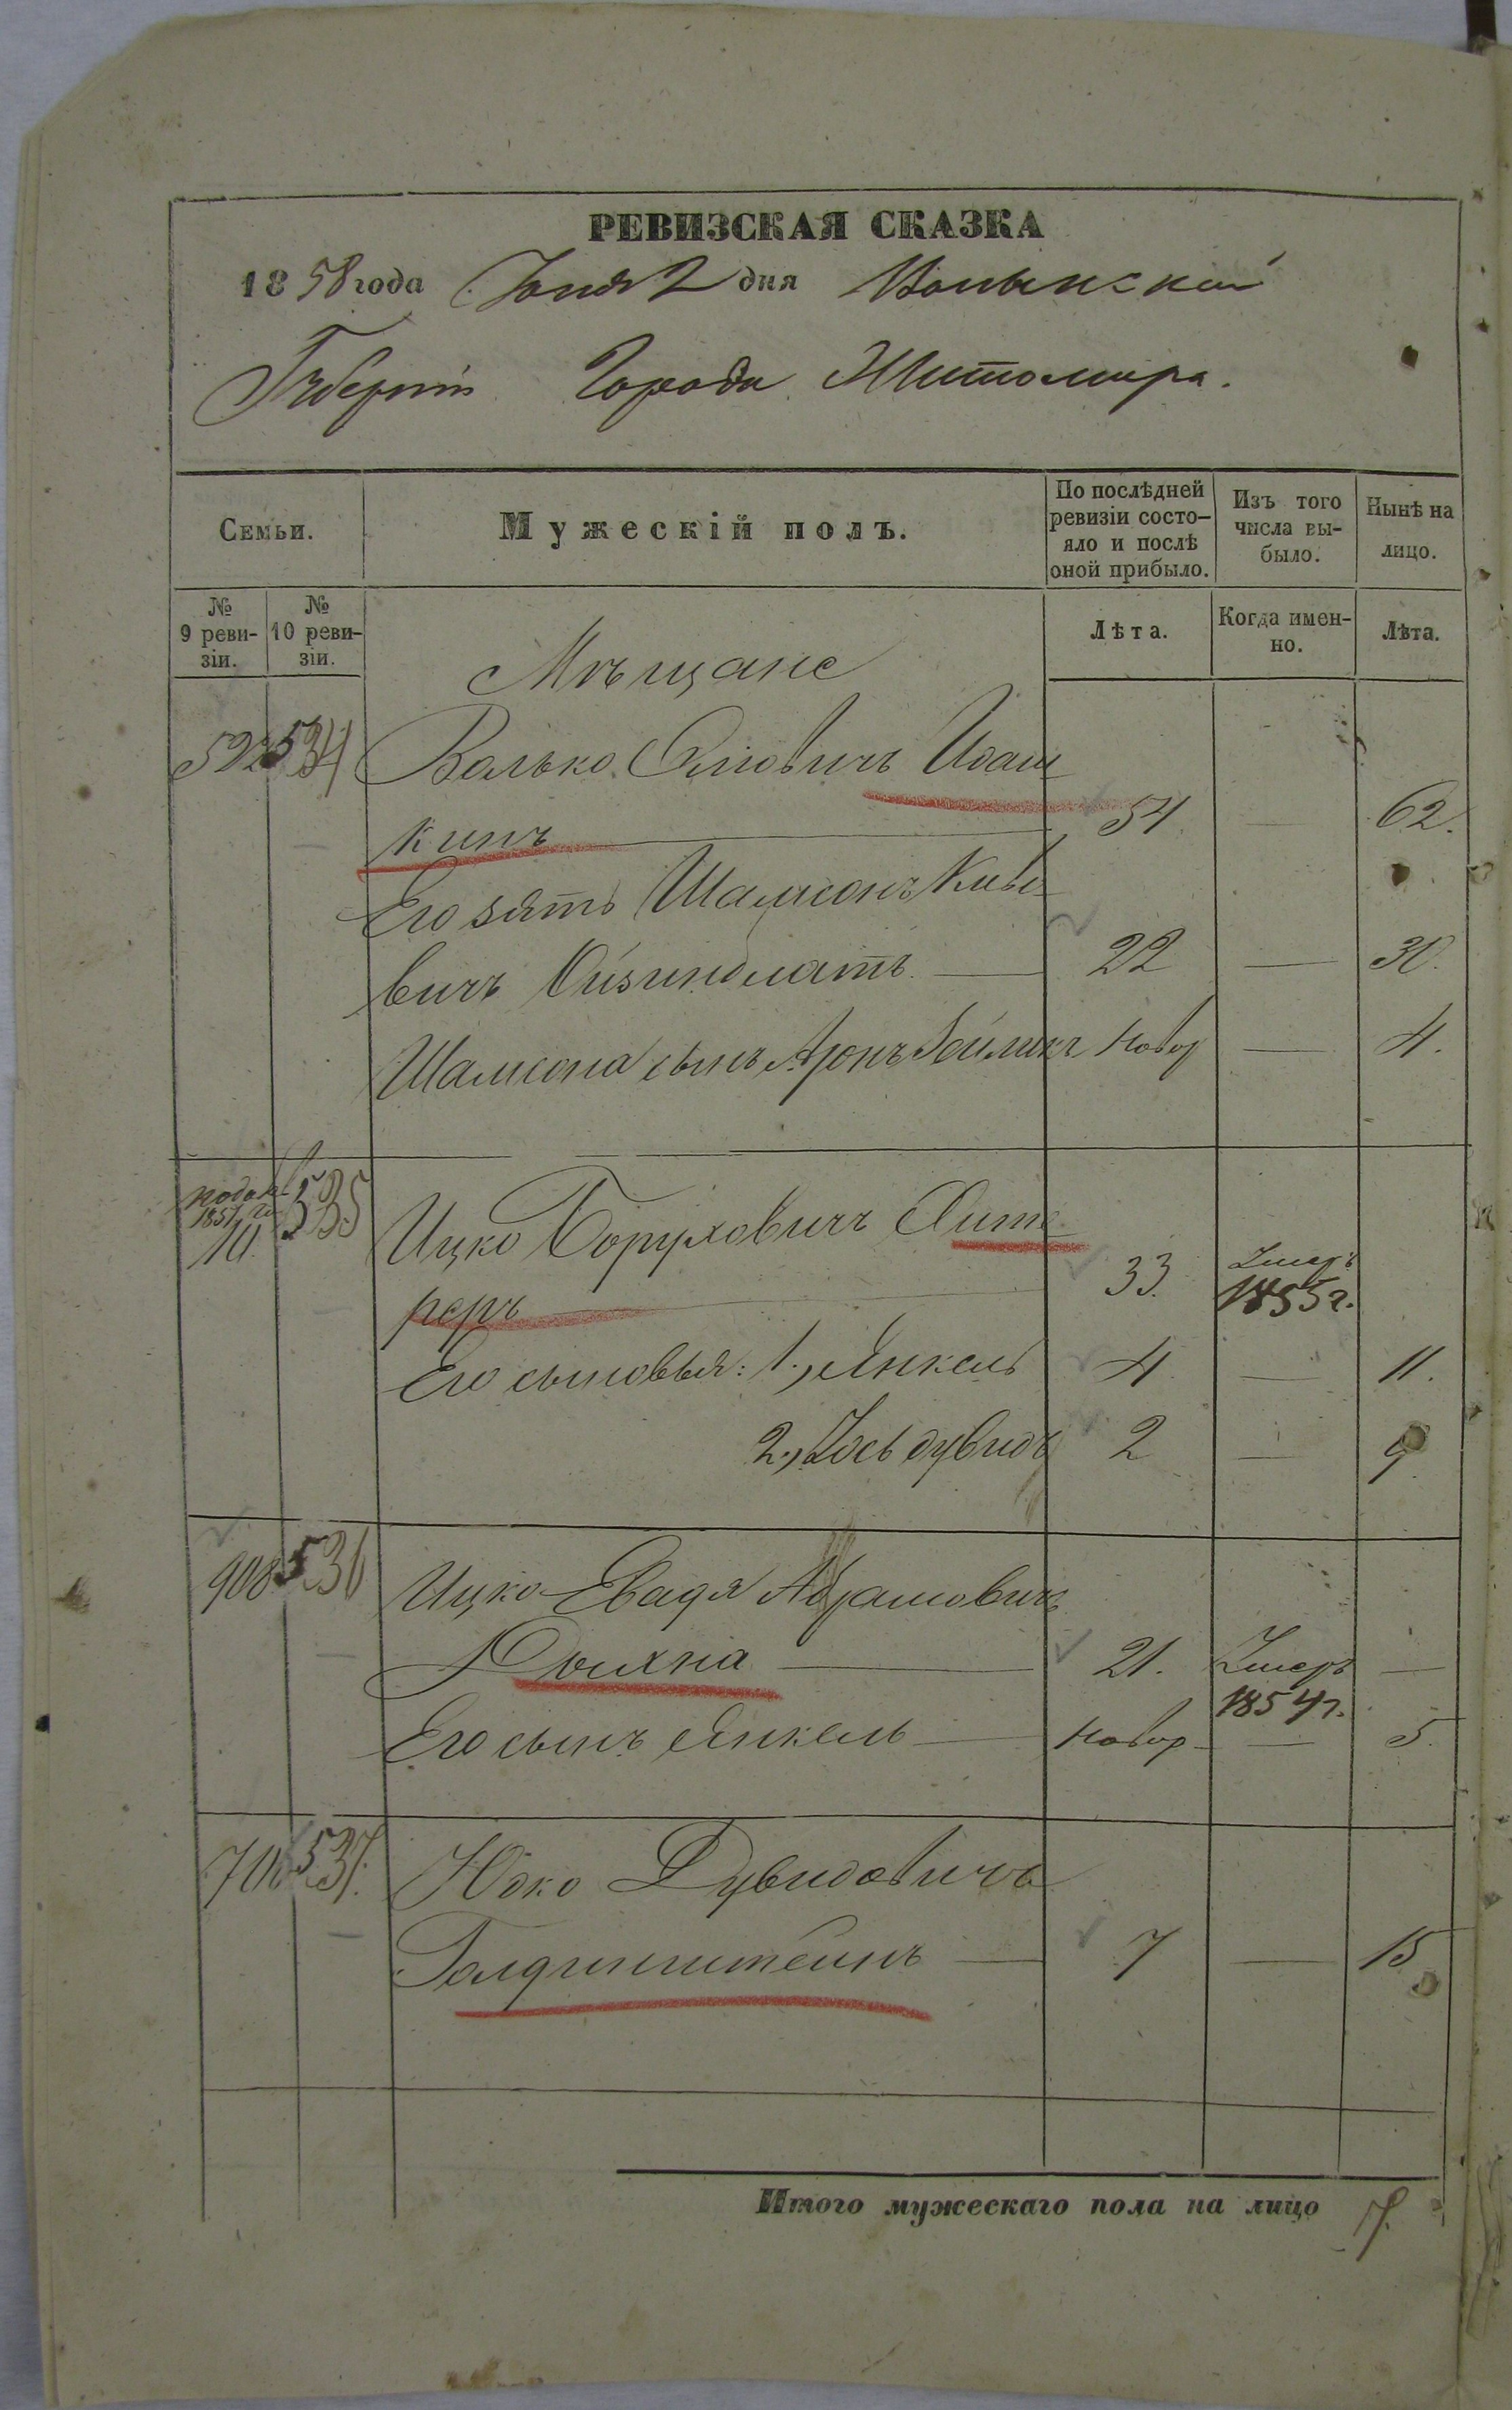 РЕВИЗСКАЯ СКАЗКА
1858 года Іюня 2 дня Волынской
Губерніи Города Житомира.
Семьи.
Мужескій полъ.
По послѣдней ревизіи состо-
яло и послѣ
оной прибыло.
Изъ того
числа вы-
было.
Нынѣ на
лицо.
№
9 реви-
зіи.
№
10 реви-
зіи.
Лѣта.
Когда имен-
но.
Лѣта.
Мѣщане
534 Волько
кинъ 54 — 62.
Его зять Шамсонъ Киве
вичъ 22 — 30.
Шамсона сынъ Аронъ Зейликъ Новор — 4.
10. 535 Ицко Боруховичъ
реръ 33. Умеръ 1855 г.
Его сыновья: 1., Янкель 4 — 11.
2., Іось дувидъ 2 — 9
908 536 Ицко Евадя Абрамовичъ
21. Умеръ —
1854 г.
Его сынъ Янкель — Новор — 5.
706 537. Юзко Дувидовичъ
Голдинштейнъ — 7 — 15
Итого мужескаго пола на лицо 7.